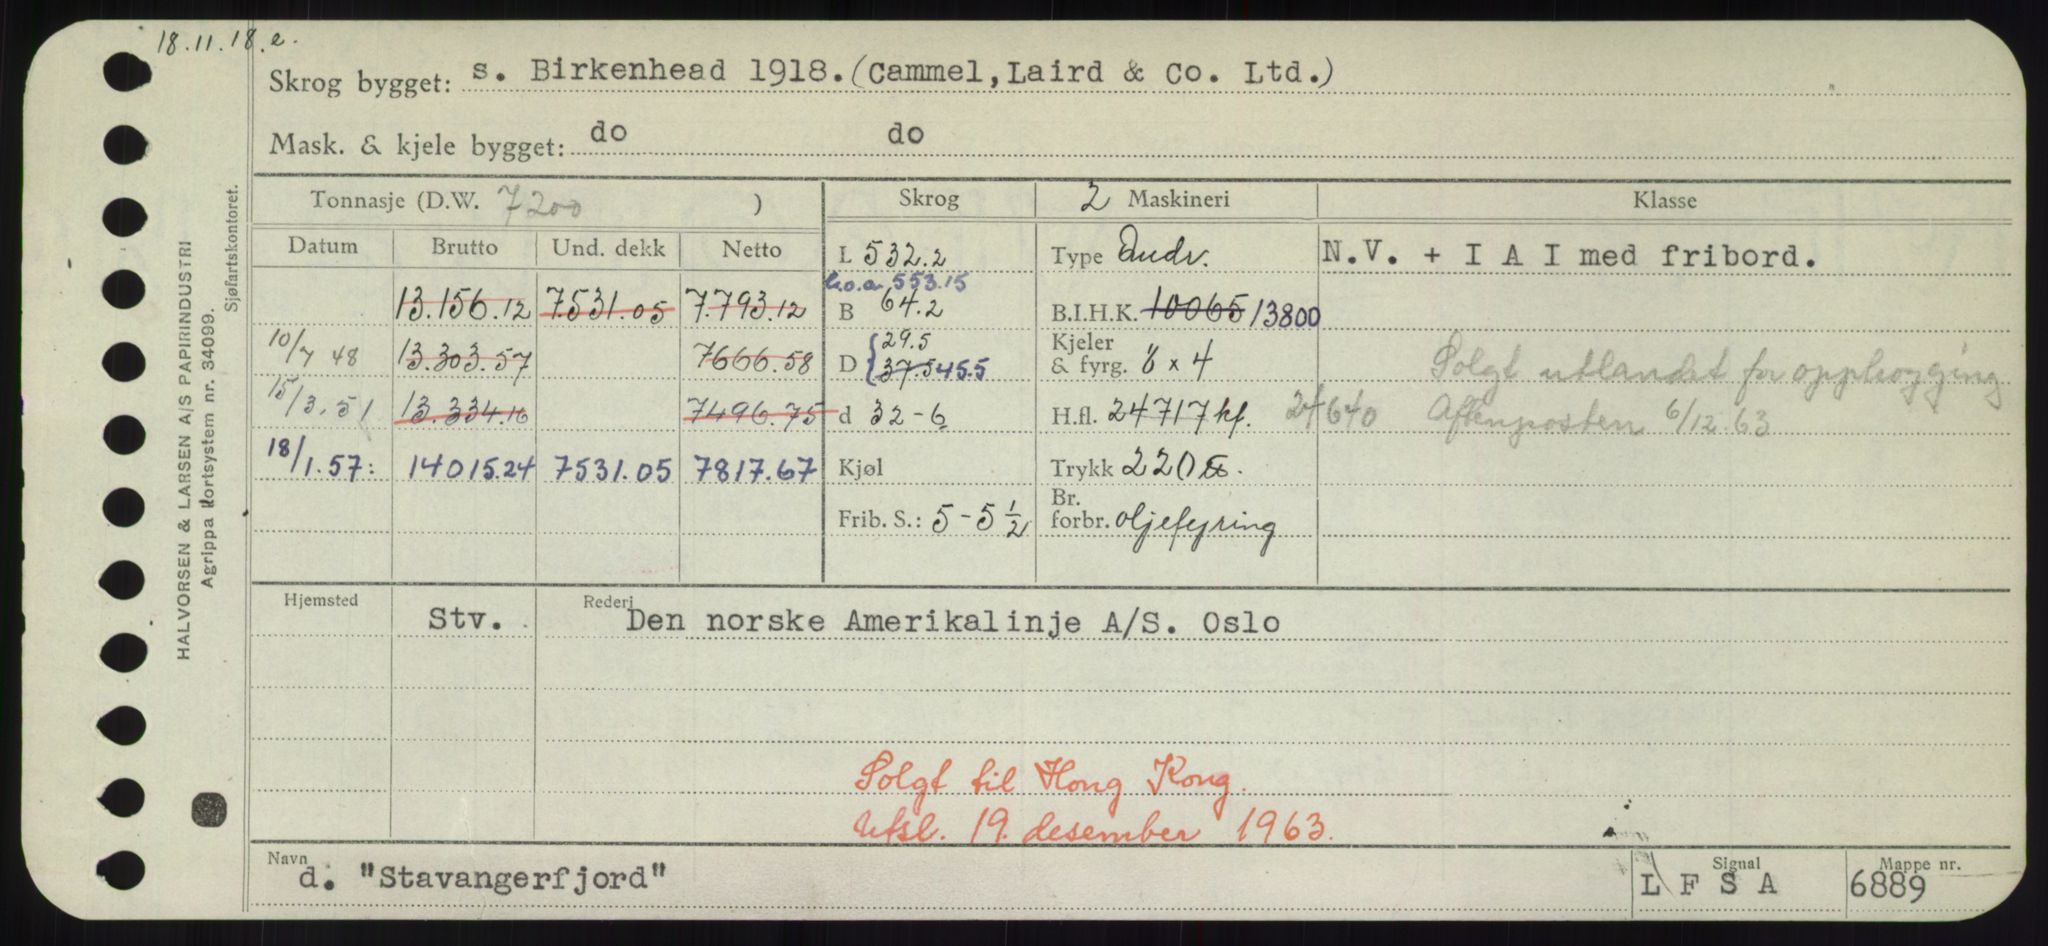 18.11.18.e.
Skrog bygget: s. Birkenhead 1918. (Cammel, Laird & Co. Ltd.)
Mask. & kjele bygget: do do
Tonnasje (D.W. 7200 ) Skrog 2 Maskineri Klasse
Datum Brutto Und. dekk Netto L 532.2 Type Quadr. N.V. + I A I med fribord.
l.o.a. 553.15
13.156.12 7.531.05 7.793.12 B 64.2 B.I.H.K. 10065 13800
10/7 48 13.303.57 7666.58 D { 29.5 37.5 45.5 Kjeler & fyrg. 6 x 4 Solgt utlandet for opphogging
15/3.51 13.334.16 7496.75 d 32-6 H.fl. 24717 kf. 24640 Aftenposten 6/12.63
18/1.57: 14015.24 7531.05 7817.67 Kjøl Trykk 220 lb.
Frib. S.: 5-5½ Br. forbr. oljefyring
Hjemsted Stv. Rederi Den norske Amerikalinje A/S. Oslo
Solgt til Hong Kong.
Utsl. 19. desember 1963.
Navn d. "Stavangerfjord" Signal L F S A Mappe nr. 6889
HALVORSEN & LARSEN A/S PAPIRINDUSTRI
Agrippa Kortsystem nr. 34099.
Sjøfartskontoret.